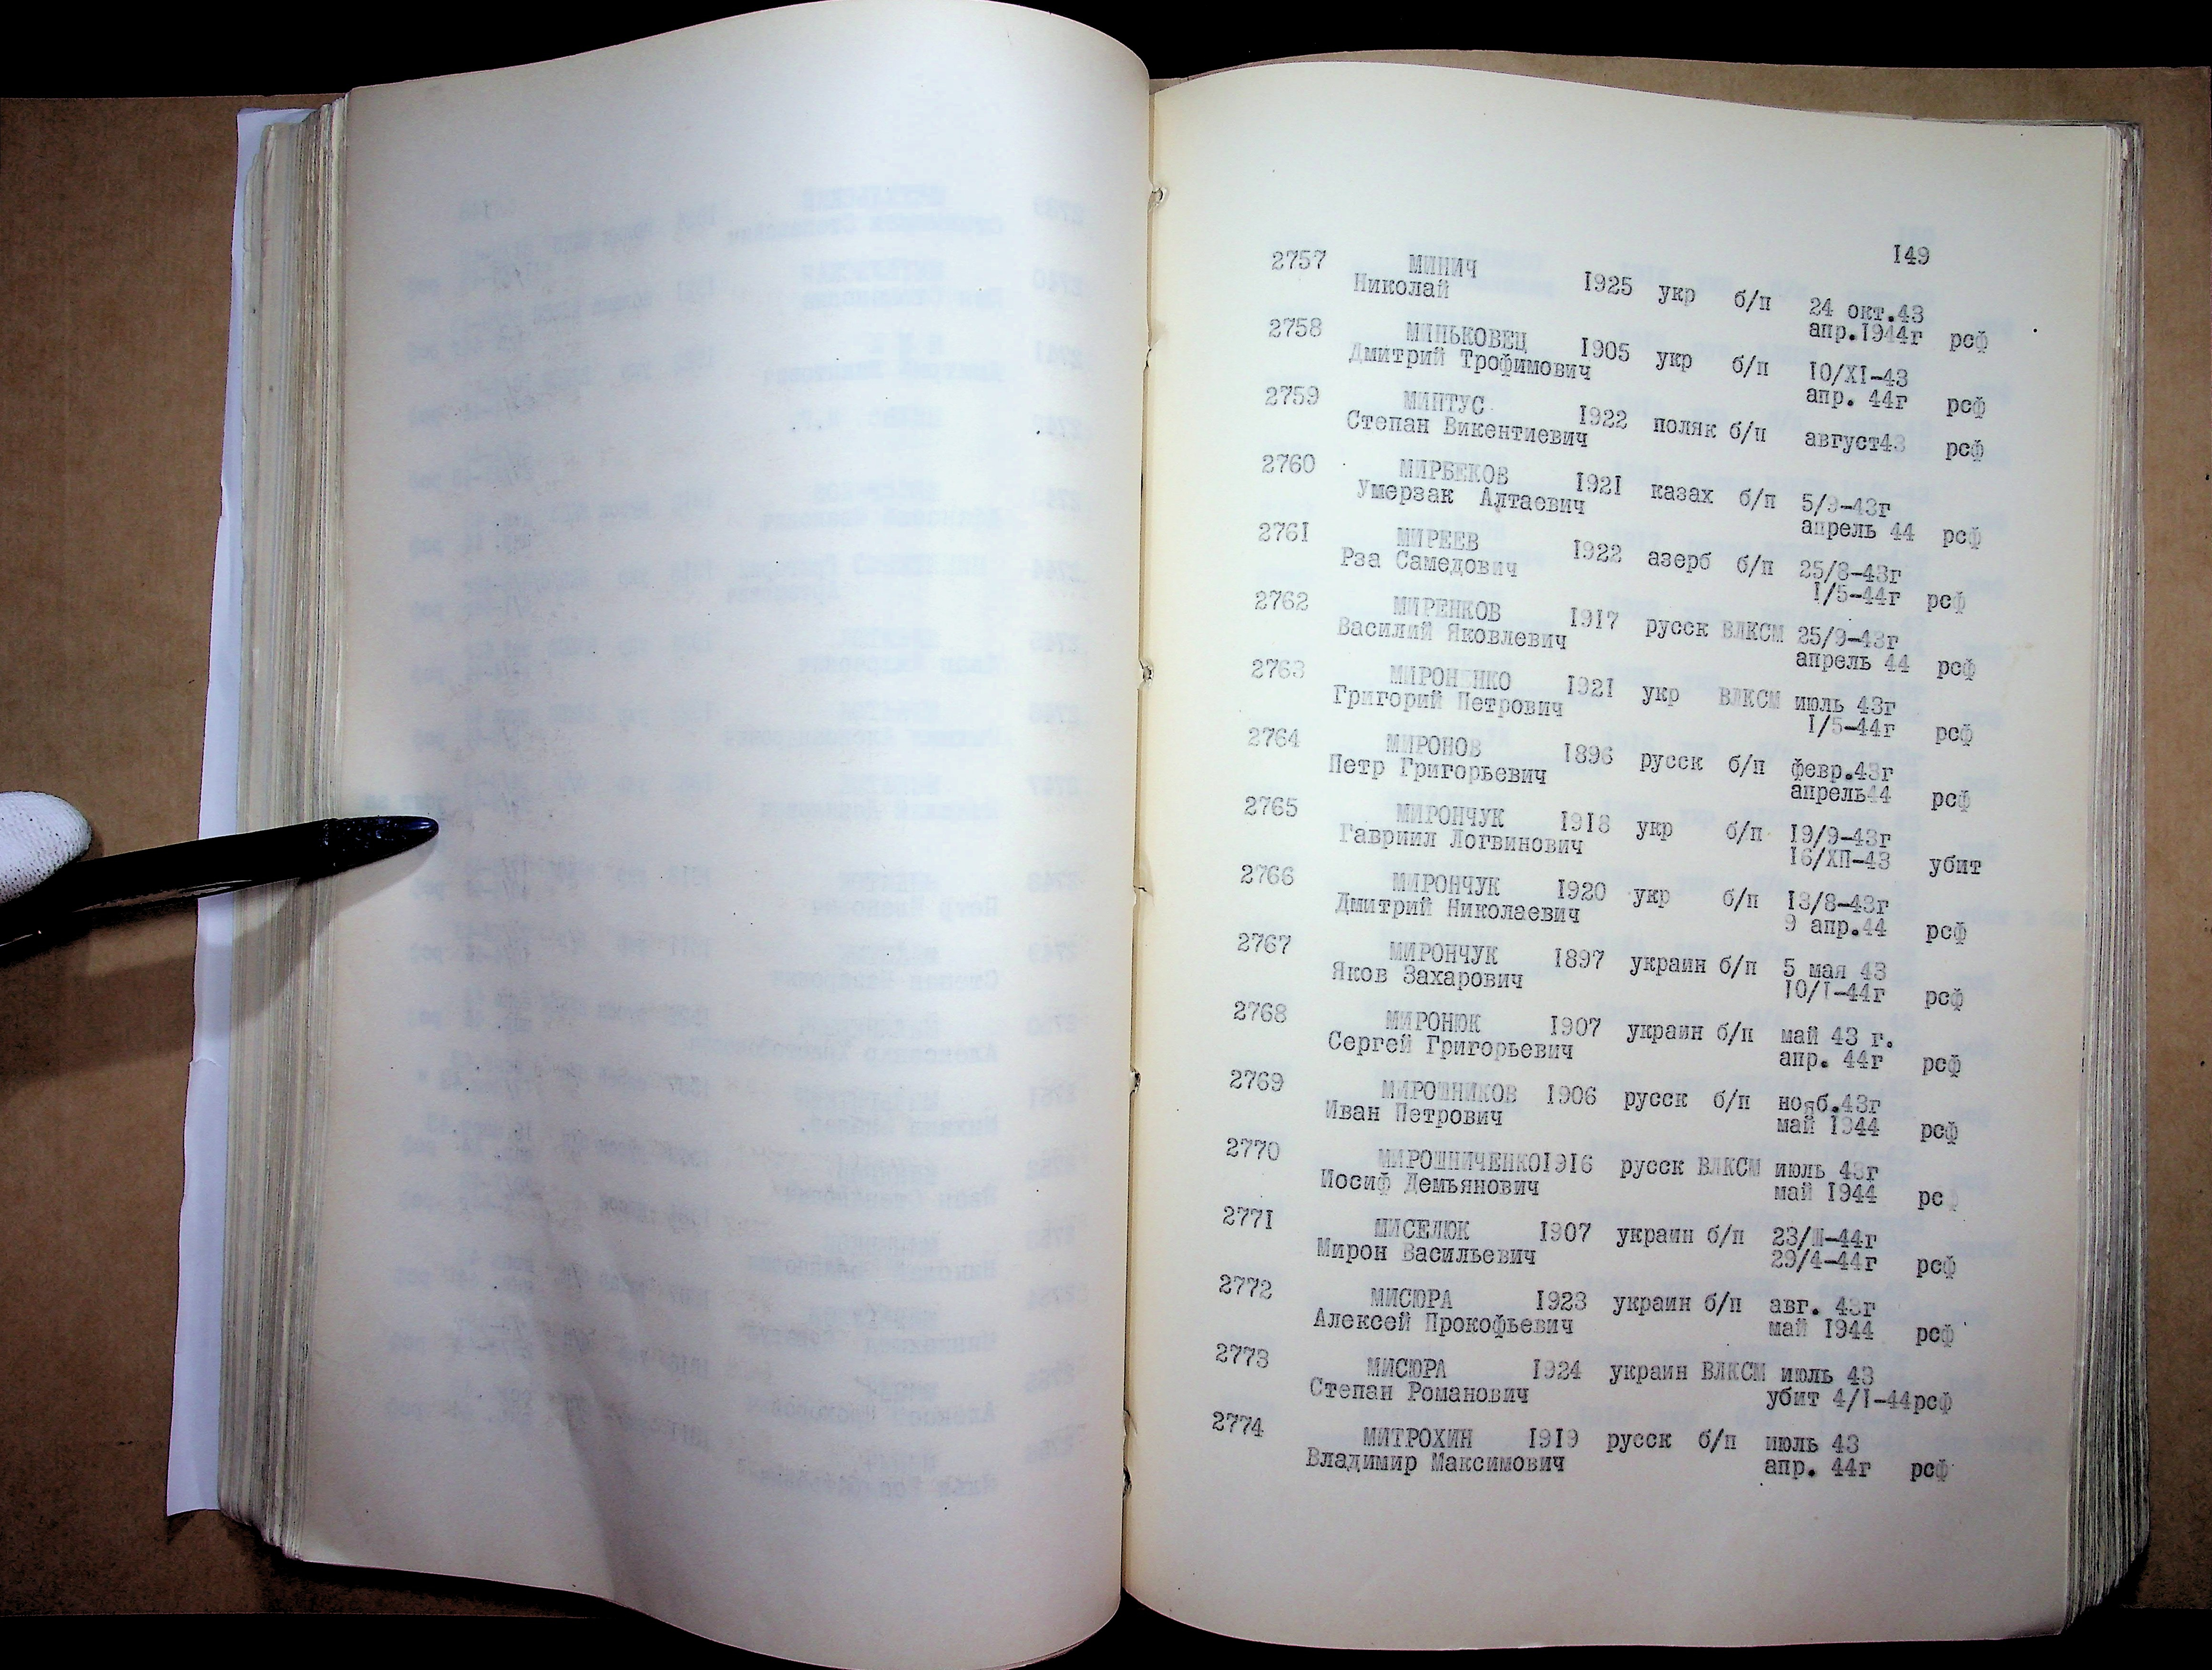 149
2757 МИНИЧ 1925 укр б/п 24 окт.43
Николай апр.1944г рсф
2758 МИНЬКОВЕЦ 1905 укр б/п 10/XI-43
Дмитрий Трофимович апр. 44г рсф
2759 МИНТУС 1922 поляк б/п август43 рсф
Степан Викентиевич
2760 МИРБЕКОВ 1921 казах б/п 5/9-43г
Умерзак Алтаевич апрель 44 рсф
2761 МИРЕЕВ 1922 азерб б/п 25/8-43г
Рза Самедович 1/5-44г рсф
2762 МИРЕНКОВ 1917 русск ВЛКСМ 25/9-43г
Василий Яковлевич апрель 44 рсф
2763 МИРОНЕНКО 1921 укр ВЛКСМ июль 43г
Григорий Петрович 1/5-44г рсф
2764 МИРОНОВ 1896 русск б/п февр.43г
Петр Григорьевич апрель44 рсф
2765 МИРОНЧУК 1918 укр б/п 19/9-43г
Гавриил Логвинович 16/ХП-43 убит
2766 МИРОНЧУК 1920 укр б/п 13/8-43г
Дмитрий Николаевич 9 апр.44 рсф
2767 МИРОНЧУК 1897 украин б/п 5 мая 43
Яков Захарович 10/1-44г рсф
2768 МИРОНЮК 1907 украин б/п май 43 г.
Сергей Григорьевич апр. 44г рсф
2769 МИРОШНИКОВ 1906 русск б/п нояб.43г
Иван Петрович май 1944 рсф
2770 МИРОШНИЧЕНКО1916 русск ВЛКСМ июль 43г
Иосиф Демьянович май 1944 рс
2771 МИСЕЛЮК 1907 украин б/п 23/Ш-44г
Мирон Васильевич 29/4-44г рсф
2772 МИСЮРА 1923 украин б/п авг. 43г
Алексей Прокофьевич май 1944 рсф
2773 МИСЮРА 1924 украин ВЛКСМ июль 43
Степан Романович убит 4/1-44рсф
2774 МИТРОХИН 1919 русск б/п июль 43
Владимир Максимович апр. 44г рсф